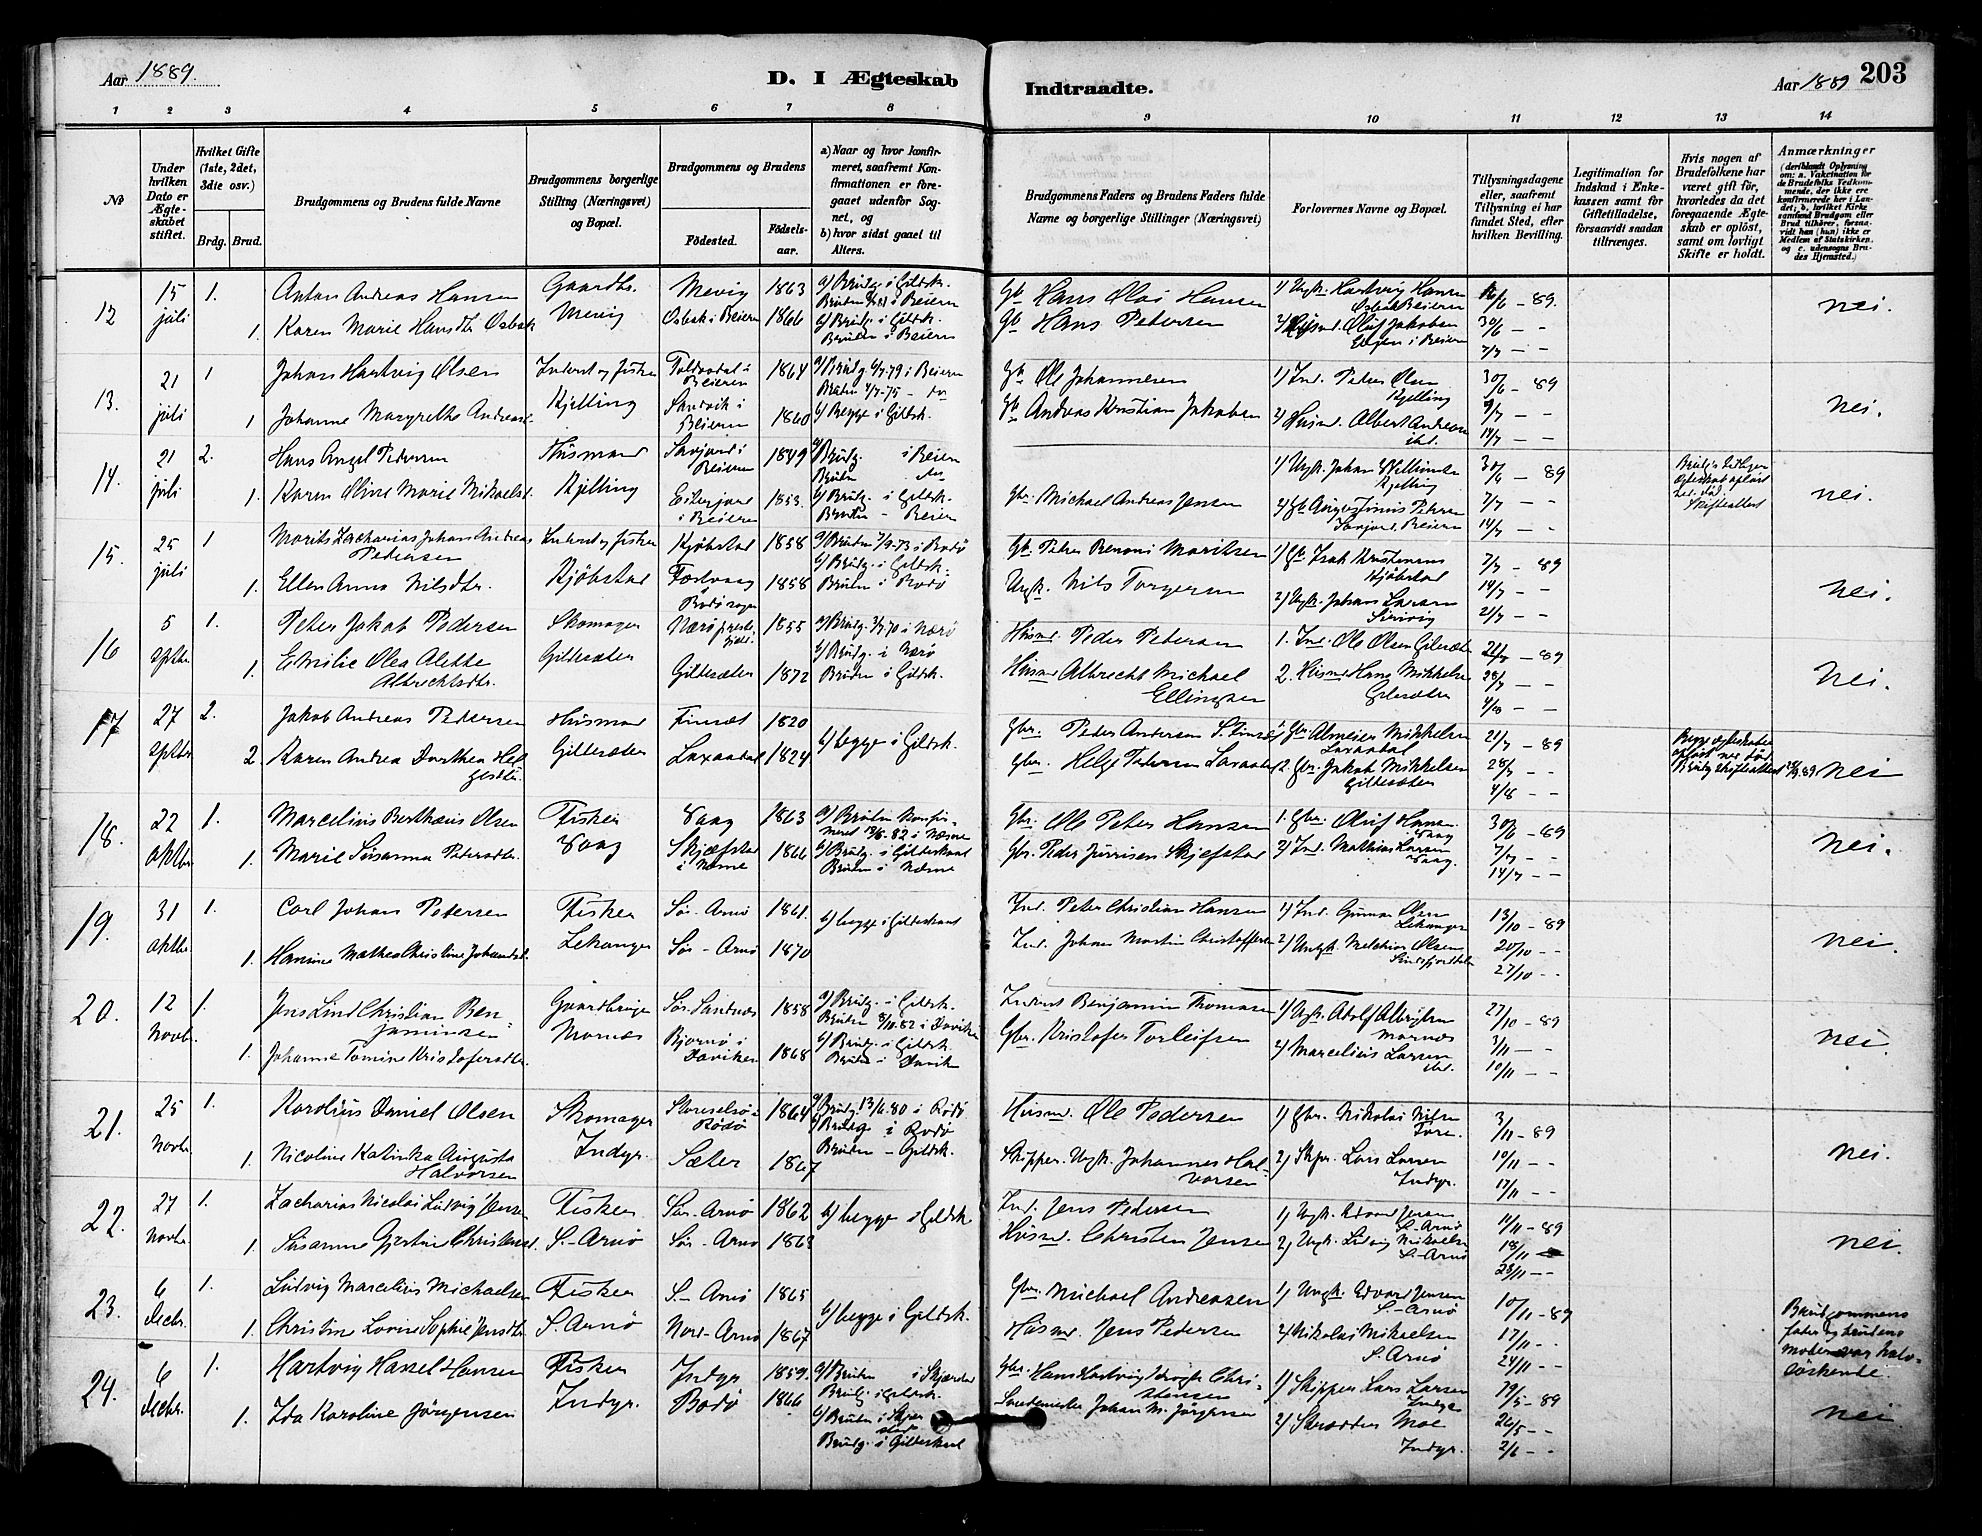 Aar 1889.
D. I Ægteskab
Indtraadte.
Aar 1889
203
1 2 3 4 5 6 7 8 9 10 11 12 13 14
No
Under hvilken Dato er Ægteskabet stiftet.
Hvilket Gifte (1ste, 2det, 3die osv.)
Brdg. Brud.
Brudgommens og Brudens fulde Navne
Brudgommens borgerlige Stilling (Næringsvei) og Bopæl.
Brudgommens og Brudens
Fødested.
Fødselsaar.
a) Naar og hvor konfirmeret, saafremt Konfirmationen er foregaaet udenfor Sognet, og
b) hvor sidst gaaet til Alters.
Brudgommens Faders og Brudens Faders fulde Navne og borgerlige Stillinger (Næringsvei)
Forlovernes Navne og Bopæl.
Tillysningsdagene eller, saafremt Tillysning ei har fundet Sted, efter hvilken Bevilling.
Legitimation for Indskud i Enkekassen samt for Giftetilladelse, forsaavidt saadan tiltrænges.
Hvis nogen af Brudefolkene har været gift før, hvorledes da det foregaaende Ægteskab er opløst, samt om lovligt Skifte er holdt.
Anmærkninger
(deriblandt Oplysning om: a. Vaccination for de Brudefolks Vedkommende, der ikke ere konfirmerede her i Landet; b. hvilket Kirkesamfund Brudgom eller Brud tilhører, forsaavidt han (hun) ikke er Medlem af Statskirken, og c. udensogns Brudes Hjemsted.)
12 15 juli 1. Anton Andreas Hansen Gaardbr. Mevig 1863 a) Brudg. i Gildsk.
Mevig Bruden i Beiern
1. Karen Marie Hansdtr Osbak Osbak i Beiern 1866 b) Brudg. i Gildsk.
Bruden i Beiern
Gb. Hans Olai Hansen 1) Ungk. Hartvig Hansen 16/6 - 89.
Osbak Beiern
Gb. Hans Pedersen 2) Husmd. Oluf Jakobsen 30/6 - -
i Beiern 7/7 - -
nei.
13. 21 juli 1 Johan Hartvig Olsen Inderst og Fisker Beiern 1864 a) Brudg 6/7-79 i Beiern
Kjelling Bruden 4/7-75 - do
1 Johanne Margrethe Andreasd. Sandvik i Beiern 1860 b) Begge i Gildsk.
Gb. Ole Johannesen 1) Ind. Peder Olsen Kjelling 30/6 - 89
Gb. Andreas Kristian Jakobsen 2) Husmd. Albert Andreasen ibd. 7/7 - -
14/7 - -
nei.
14. 21 juli 2. Hans Angel Pedersen Husmand Beiern 1849 a) Brudg. i Beiern
Kjelling Bruden do
1. Karen Oline Marie Mikaelsd. i Beiern 1853. b) Brudg. i Gildsk.
Bruden - Beiern
Gbr. Michael Andreas Jensen 1) Ungk. Johan Kjelling 30/6 - 89
2) Gb. Augustinus Pedersen Beiern 7/7 - -
14/7 - -
Skifteattest
nei.
15. 25 juli 1 Morits Zacharias Johan Andreas Pedersen Inderst og Fisker Kjøbstad 1858 a) Bruden 7/9-73 i Bodø
Kjøbstad b) Brudg. i Gildsk.
1. Ellen Anna Nilsdtr. Bodø sogn 1858 Bruden i Bodø
Gb. Peder Benoni Moritsen 1) Gb. Isak Kristensen Kjøbstad 7/7 - 89
Ungk. Nils Torgersen 2) Ungk. Johan Larsen 14/7 - -
21/7 - -
nei.
16 5 Septbr. 1. Peter Jakob Pedersen Skomager Nærø 1855 a) Brudg. 3/7-70 i Nærø
Gildesæter b) Brudg. i Nærø
1. Emilie Olea Alette Albrechtsdtr. Gildesæter 1872 Bruden i Gildsk.
Husmd. Peder Petersen 1. Ind. Ole Olsen Gildesæter 21/7 - 89
Husmd. Albrecht Michael Ellingsen 2. Husmd. Hans Mikkelsen Gildesæter 28/7 - -
4/8 - -
nei.
17 27 Septbr. 2. Jakob Andreas Pedersen Husmand Finset 1820
Gildesæter b) begge i Gildsk.
2. Karen Andrea Dorthea Helgesdtr. Laxaadal 1824
Gbr. Peder Andersen 1) Gbr. Almeier Mikkelsen Laxaadal 21/7 - 89
Gbr. Helge Pedersen Laxaadal 2. Gbr. Jakob Mikkelsen Gildesæter 28/7 - -
4/8 - -
Begge ægteskaber opløst ved død
nei
18. 22 Oktbr. 1. Marcelius Berthæus Olsen Fisker Vaag 1863 a) Bruden konfirmeret 13/8-82 i Næsne
Vaag b) Brudg. i Gildeskaal
1. Marie Susanna Pedersdtr. Skjæfstad i Næsne 1866 Bruden i Næsne
Gbr. Ole Peter Hansen 1. Gbr. Oluf Hansen Vaag 30/6 - 89
Gbr. Peder Jurrisen Skjefstad 2) Ind. Mathias Larsen Vaag. 7/7 - -
14/7 - -
nei.
19. 31 Oktbr. 1. Carl Johan Petersen Fisker Sør-Arnø 1861. b) begge i Gildeskaal
Lekanger
1. Hanine Mathea Christine Johansd. Sør-Arnø 1870
Ind. Peter Christian Hansen 1) Ind. Gunnar Olsen Lekanger 13/10 - 89
Ind. Johan Martin Christoffersen 2) Ungk. Melchior Olsen 20/10 - -
27/10 - -
nei.
20. 12 Novbr. 1. Jens Lind Christian Benjaminsen Gaardbruger Sør-Sandnes 1858 a) Brudg. i Gildsk.
Mornes Bruden 8/10.82 i Daviken
1. Johanne Tomine Kristofersdtr. Bjørnø i Daviken 1868 b) Brudg. i Gildsk.
Bruden i Davik
Inderst Benjamin Thomasen 1) Ungk. Adolf Albrigtsen Mornes 27/10 - 89
Gbr. Kristofer Torleifsen 2) Marcelius Larsen ibd. 3/11 - -
10/11 - -
nei.
21. 25 Novbr. 1. Karolius Daniel Olsen Skomager Storselsø i Rødø 1864 a) Brudg. 13/6.80 i Rødø
Indyr. b) Brudg i Rødø
1. Nicoline Katinka Augusta Halvorsen Sæter 1867 Bruden - Gildsk.
Husmd. Ole Pedersen 1) Gbr. Nikolai Nilsen Fore. 3/11 - 89
Skipper. Ungk. Johannes Halvorsen 2) Skpr. Lars Larsen Indyr. 10/11 - -
17/11 - -
nei.
22. 27 Novbr. 1. Zacharias Nicolai Ludvig Jensen Fisker Sør-Arnø 1862 b) begge i Gildsk
1. Susanne Gjertine Christensd. S.-Arnø Sør-Arnø 1863
Ind. Jens Pedersen 1) Ungk. Edvard Jensen S-Arnø 11/11 - 89
Husmd. Christen Jensen 2) Ungk. Ludvig Mikaelsen S-Arnø 18/11 -
23/11 - -
nei.
23. 6 Decbr. 1. Ludvig Marcelius Michaelsen Fisker S.-Arnø 1865
S. Arnø b) begge i Gildsk.
1. Christine Lovise Sophie Jensdtr. Nord-Arnø 1867
Gbr. Michael Andreasen 1) Ungk Edvard Jensen S-Arnø 10/11 - 89
Husmd. Jens Pedersen 2) Nikolai Mikaelsen S. Arnø 17/11 - -
24/11 - -
Brudgommens fader og brudens moder var halvsøskende.
24. 6 Decbr. 1. Hartvig Hassel Hansen Fisker Indyr 1859. a) Bruden i Skjerstad
Indyr. Brudg. i Gildsk.
1. Ida Karoline Jørgensen Bodø 1866 b) Bruden i Skjerstad
Brudg. i Gildeskaal
Gbr. Hans Hartvig Christensen 1) Skipper Lars Larsen Indyr 19/5 - 89
Johan M. Jørgensen 2) Skrædder Moe Indyr. 26/5 - -
2/6 - -
nei